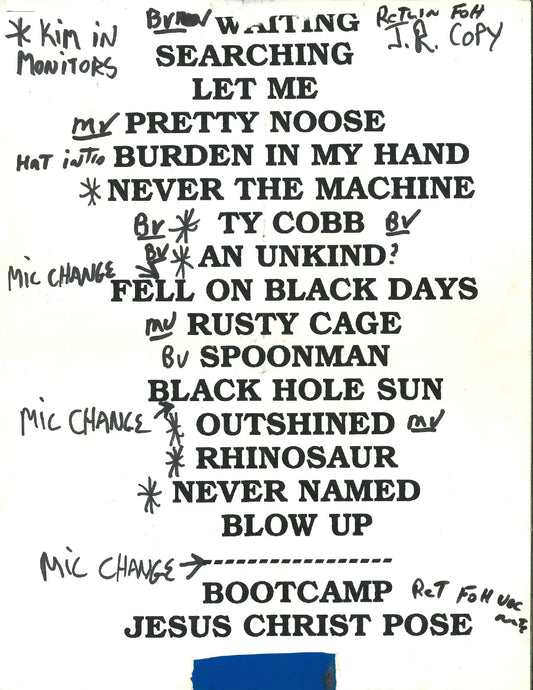 * KIM IN MONITORS
BV WAITING FOH
J.R. COPY
SEARCHING
LET ME
MV PRETTY NOOSE
HAT INTRO BURDEN IN MY HAND
* NEVER THE MACHINE
BV * TY COBB BV
BV * AN UNKIND?
MIC CHANGE →
FELL ON BLACK DAYS
MV RUSTY CAGE
BV SPOONMAN
BLACK HOLE SUN
MIC CHANGE → * OUTSHINED MV
* RHINOSAUR
* NEVER NAMED
BLOW UP
MIC CHANGE → -----------------
BOOTCAMP RCT FOH VOC
JESUS CHRIST POSE